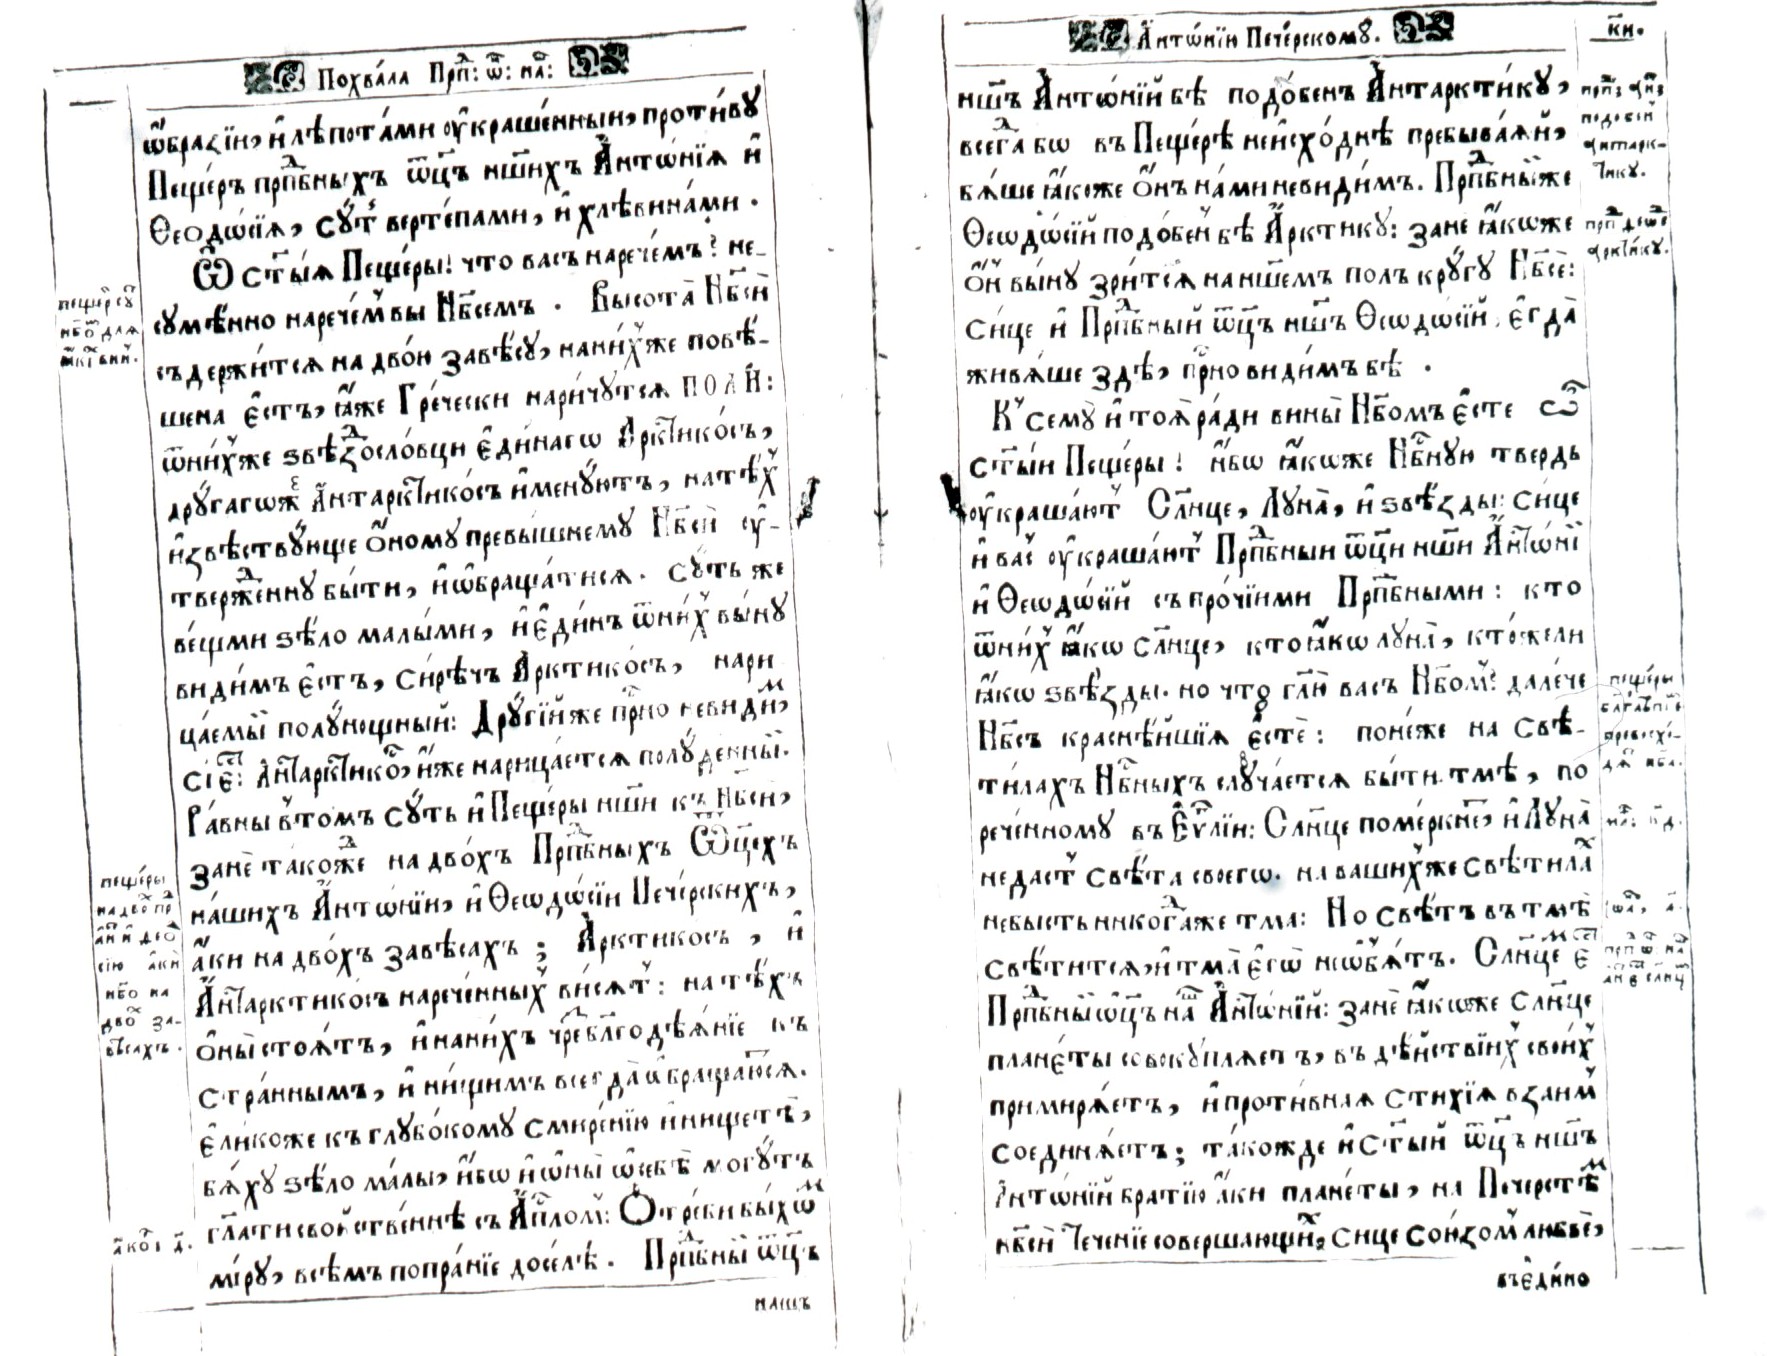 Похва́ла Прпⷣ: ѿ: на́:
ѡ҆́бразїи, и҆ лѣпота́ми оу҆кра́шенныи, проти́вꙋ
Пеще́ръ прпⷣбныхъ ѿц҃ъ нш҃ихъ А҆нтѡ́нїѧ и҆
Ѳеодѡ́сїѧ, сꙋ́тъ верте́пами, и҆ хлѣвина́ми.
Ѽ ст҃ы́ѧ Пеще́ры! что васъ нарече́мъ? не-
сꙋмѣ́нно нарече́мъ вы Нб҃семъ. Высота̀ Нб҃сѝ
съдержи́тсѧ на двою̀ завѣ́сꙋ, на ни́хже повѣ́-
шена є҆́стъ, ꙗ҆́же Гре́чески нари́чꙋтсѧ ПОЛИ́:
ѿ ни́хже ѕвѣздосло́вци є҆ди́наго Арктіко́съ,
дрꙋ́гагож А҆нтарктіко́съ и҆менꙋ́ютъ, на тѣ́хъ
и҆звѣствꙋ́юще О҆́номꙋ превы́шнемꙋ Нб҃сѝ оу҆-
твержде́ннꙋ бы́ти, и҆ ѡ҆браща́тисѧ. Сꙋ́ть же
ве́щми ѕѣ́ло ма́лыми, и҆ є҆ди́нъ ѿ ни́хъ вы́нꙋ
види́мъ є҆́стъ, си́рѣчъ Арктико́съ, нари
ца́емый полꙋ́нощный: Дрꙋ́гїйже прⷭ҇но неви́дим,
сі́естъ: А҆нтарктіко́съ, и҆́же нарица́етсѧ полꙋ́денный.
Ра́вны в томъ сꙋ́ть и҆ Пеще́ры нш҃и къ Нб҃сѝ,
занѐ та́кожде на дво́хъ Прпⷣбныхъ Ѿц҃ехъ
на́шихъ А҆нтѡ́нїи, и҆ Ѳеѡдѡ́сїи Пече́рскихъ,
а҆́ки на дво́хъ завѣ́сахъ; Арктикосъ, и҆
А҆нтарктико́съ нарече́нныхъ ви́сѧтъ: на тѣ́хъ
о҆ны̀ стоѧ́тъ, и҆ на ни́хъ чре́з блг҃одѣѧ́нїе къ
стра́ннымъ, и҆ ни́щимъ всегда̀ ѡ҆браща́ютсѧ.
є҆ли́коже къ глꙋбо́комꙋ смире́нїю и҆ нищетѣ̀,
бѧ́хꙋ ѕѣ́ло ма́лы, и҆́бѡ и҆ ѡ҆ны̀ ѡ҆ себѣ̀ могꙋ́тъ
гл҃ати сво́йственнѣ съ А҆пⷭ҇ломъ: О҆тре́би бы́хом
мі́рꙋ, всѣ́мъ попра́нїе досе́лѣ. Прпⷣбный ѿц҃ъ
нашъ
пеще́ры
на двѡ пр
небо на
А҆нтѡ́нїю Пече́рскомꙋ.
к҃и.
нш҃ъ А҆нтѡ́нїй бѣ подо́бенъ А҆нтаркти́кꙋ,
всегда бѡ въ Пеще́рѣ неисхо́днѣ пребыва́ѧй,
бѧ́ше ꙗ҆́коже О҆́нъ на́ми неви́димъ. Прпⷣбныйже
Ѳеѡдѡ́сїй подо́бен бѣ А҆́рктикꙋ: занѐ ꙗ҆́кѡже
О҆́н вы́нꙋ зри́тсѧ на нш҃емъ полъ крꙋ́гꙋ Нб҃сѐ:
си́це и҆ Прпⷣбный ѿц҃ъ нш҃ъ Ѳеѡдѡ́сїй, є҆гда̀
живѧ́ше здѣ̀, прⷭ҇но види́мъ бѣ.
К семꙋ̀ и҆ тоѧ̀ ра́ди вины̀ Нб҃омъ є҆́сте ѽ
ст҃ы́и Пеще́ры! и҆́бѡ ꙗ҆́кѡже Нбⷭ҇нꙋю твердь
оу҆краша́ют Слн҃це, Лꙋна̀, и҆ ѕвѣ́зды: си́це
и҆ вас оу҆краша́ют Прпⷣбныи ѿц҃ѝ нш҃и А҆нтѡ́нїй
и҆ Ѳеѡдѡ́сїй съ про́чїими Прпⷣбными: кто
ѿ ни́х ꙗ҆́кѡ слн҃це, кто ꙗ҆́кѡ лꙋна̀, кто́жели
ꙗ҆́кѡ ѕвѣ́зды. но что гл҃ю васъ Нб҃ом? дале́че
Нб҃съ краснѣ́йшїѧ є҆стѐ: поне́же на свѣ-
ти́лахъ Нбⷭ҇ныхъ слꙋча́етсѧ бы́ти тмѣ, по
рече́нномꙋ въ Е҆ѵⷢ҇лїи: Слн҃це поме́ркне, и҆ Лꙋна̀
не даст свѣ́та своегѡ. на ва́ших же свѣти́лах
не бысть никогда́же тма: Но свѣ́тъ въ тмѣ̀
свѣ́титсѧ, и҆ тма̀ є҆гѡ̀ не ѡ҆б҆ѧ́тъ. Слн҃цем є҆стъ
Прпⷣбный ѿц҃ъ наш А҆нтѡ́нїй: занѐ ꙗ҆́кѡже Слн҃це
плане́ты совокꙋплѧ́етъ, въ дѣ́йствїих свои́х
примирѧ́етъ, и҆ проти́внаѧ стихі́ѧ взаим
соединѧ́етъ; та́кожде и҆ ст҃ый ѿц҃ъ нш҃ъ
А҆нтѡ́нїй братїю а҆́ки плане́ты, на Печерстѣм
нб҃сѝ тече́нїе соверша́ющих, сице сою́зом любвѐ,
въ є҆ди́но
подобе́н
а҆нтарк-
тикꙋ.
арктікꙋ.
пеще́ры